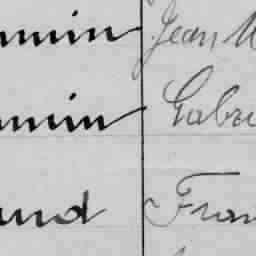 min Jean M
min Gabri
and Fran